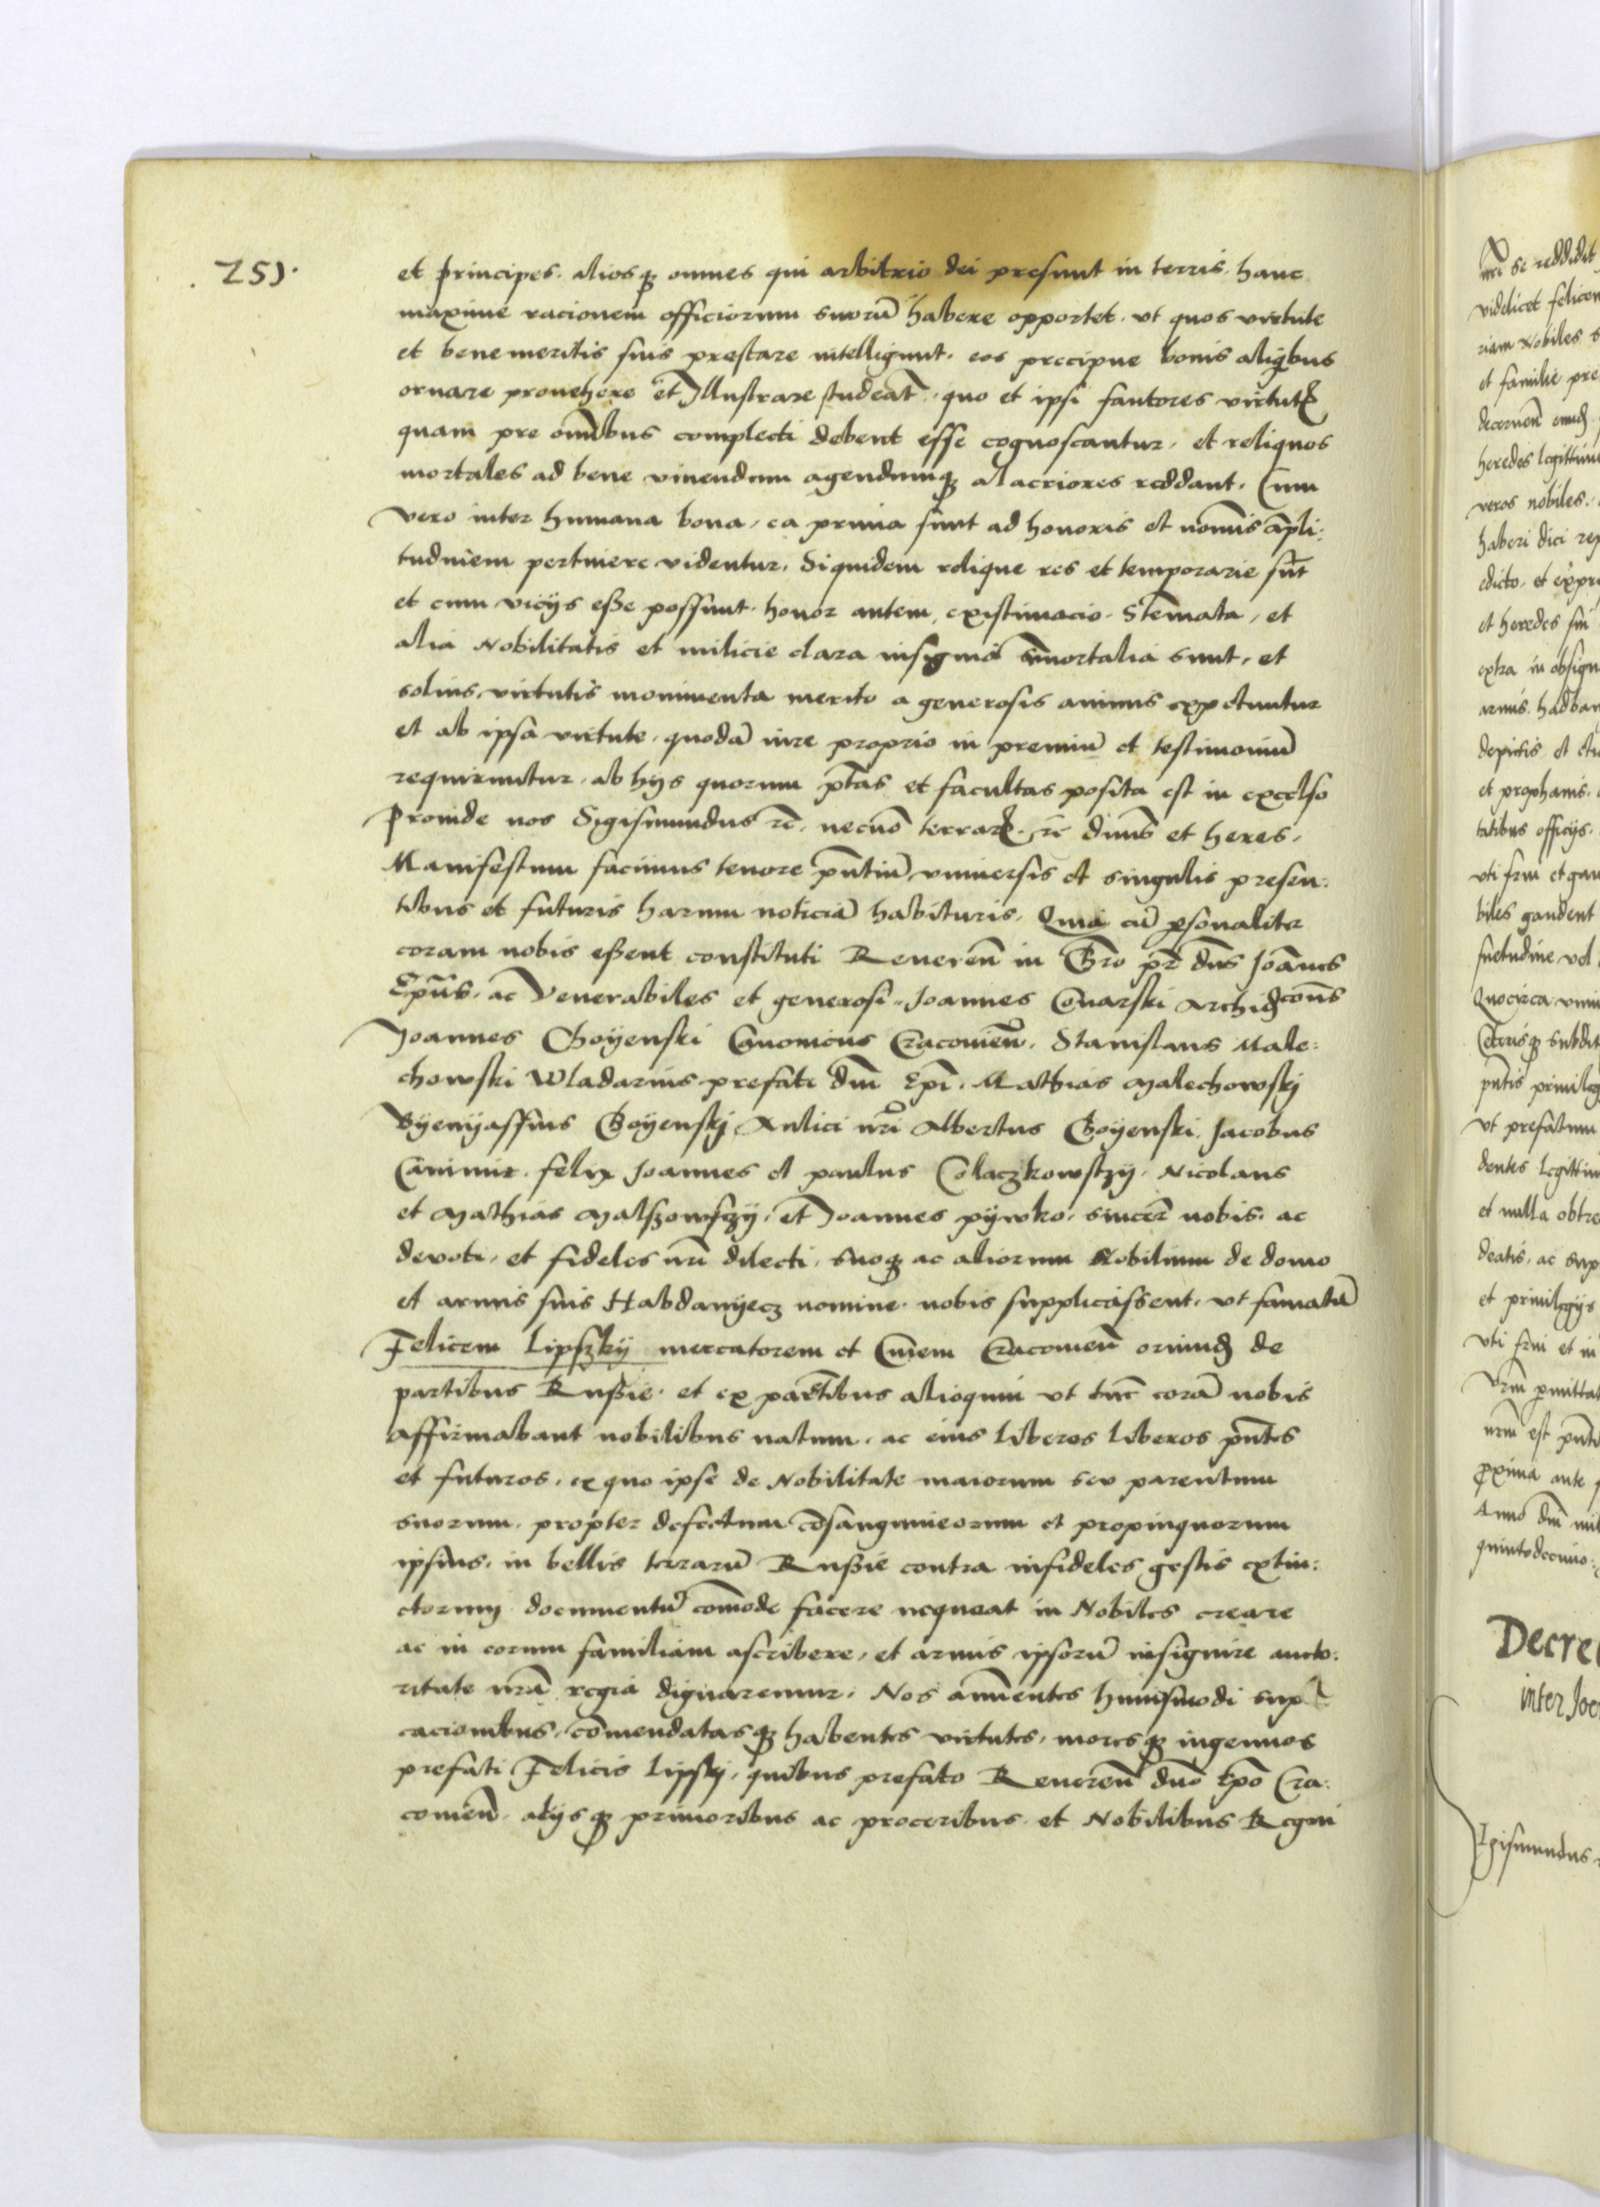 251.
et principes. aliosq3 omnes qui arbitrio dei presunt in terris. hanc
maxime racionem officiorum suorū habere opportet. vt quos virtute
et benemeritis suis prestare intelligunt. eos precipue bonis aliqbus
ornare prouehere et Illustrare studeāt. quo et ipsi fautores virtutꝭ
quam pre omībus complecti debent esse cognoscantur. et reliquos
mortales ad bene viuendum agendumq3 alacriores reddant. Cum
vero inter humana bona, ea prima sunt ad honoris et nomīs āpli:
tudinem pertinere videntur. Siquidem relique res et temporarie sūt
et cum vicijs esße possunt. honor autem, existimacio. Stēmata, et
alia Nobilitatis et milicie clara insignia īmortalia sunt, et
solius virtutis monimenta merito a generosis animis expetuntur
et ab ipsa virtute. quodā iure proprio in premiū et testimoniū
requiruntur. ab hijs quorum ptās et facultas posita est in excelso
Proinde nos Sigismundus rc̄. necnō terrarꝝ. rc̄ dīns et heres.
Manifestum facimus tenore pntiū, vniuersis et singulis presen:
tibus et futuris harum noticiā habituris. Quia cū psonaliter
coram nobis eßent constituti Reuerēn in Chro pr̄ dns Joānnes
Epūs. ac Venerabiles et generosi. Joannes Conarski Archidconūs
Joannes Choyenski Canonicus Cracouieñ. Stanislaus Male:
chowski Wladarius prefati dnī Epī. Mathias Malechowskj
Byenyassius Choyenskj Aulici nrī Albertus Choyenski. Jacobus
Cāminir. felix Joannes et paulus Colaczkowsczy. Nicolaus
et Mathias Malszowszy. et Joannes pywko. sincerē nobis. ac
deuoti. et fideles nrī dilecti. suoq3 ac aliorum Nobilium de domo
et armis suis Habdanyecz nomine. nobis supplicassent. vt famatū
Felicem Lipszky mercatorem et Ciuem Cracouieñ oriund de
partibus Rußie. et ex parentibus alioquin vt tūc corā nobis
affirmabant nobilibus natum. ac eius liberos liberos pntes
et futuros. ex quo ipse de Nobilitate maiorum seu parentum
suorum. propter defectum cōsanguineorum et propinquorum
ipsius. in bellis terrarū Rußie contra infideles gestis extin:
ctorum documentū cōmode facere nequeat in Nobiles creare
ac in eorum familiam ascribere, et armis ipsorū insignire aucto:
ritate nrā regia dignaremur. Nos annuentes huiusmodi supl
cacionibus. cōmendatasq3 habentes virtutes, moresq3 ingenuos
prefati Felicis Lipskj. quibus prefato Reuerēn dno Epo Cra:
couieñ. alijsq3 primoribus ac proceribus. et Nobilibus Regni
nri se reddidit
videlicet felicem
riam Nobiles
et familie pre
heredes legittim
veros nobiles.
haberi dici rep
edicto. et expr
et heredes sui
extra in obsign
armis. hadban
depictis et
et prophanis.
tatibus officijs.
vti frui et gau
biles gaudent
suetudine vel
Quocirca vniu
Ceterisq3 subdit
pntis priuileg
vt prefatum
dentes legittim
et nulla obtre
deatis. ac sup
et priuilegijs
vti frui et in
Vrm pmittat
nrm est pnti
proxima ante
Anno dni mil
quintodecimo.
Decre
inter Joe
Sigismundus